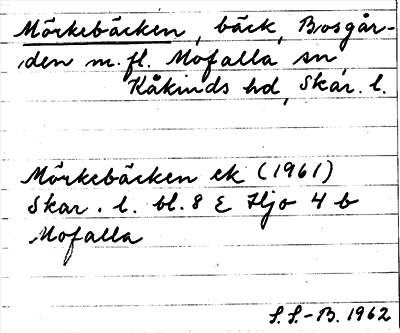 Mörkebäcken, bäck, Bosgår-
den m.fl. Mofalla sn,
Kåkinds hd, Skar. l.
Mörkebäcken ek (1961)
Skar. l. bl. 8 E Hjo 4 b
Mofalla
S.S.-B. 1962